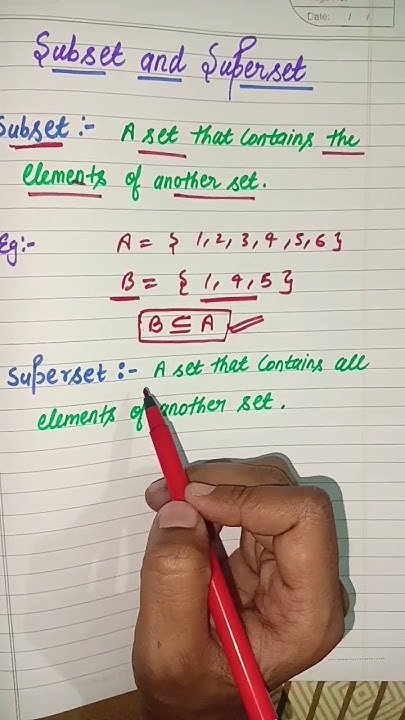 Date: / /
Subset and Superset
Subset :- A set that contains the
elements of another set.
Eg:- A = { 1, 2, 3, 4, 5, 6 }
B = { 1, 4, 5 }
B ⊆ A
Superset :- A set that contains all
elements of another set.